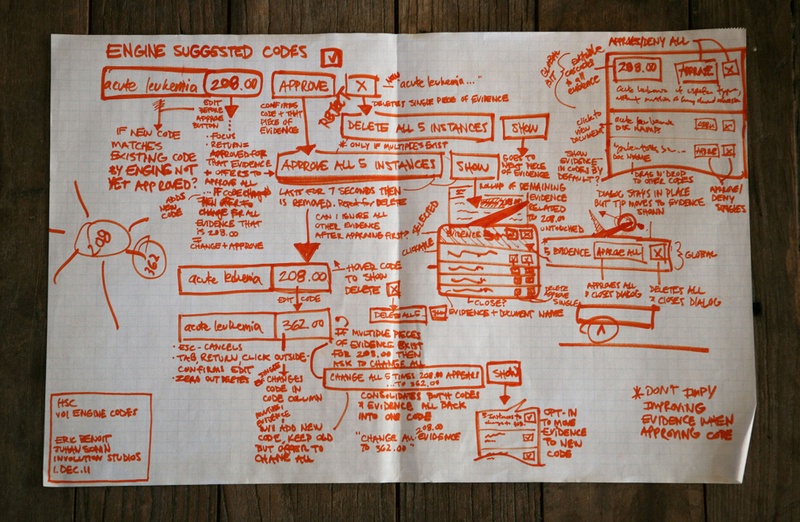 ENGINE SUGGESTED CODES
acute leukemia 208.00
APPROVE
X
"acute leukemia..."
DELETES SINGLE PIECE OF EVIDENCE
REJECT
DELETE ALL 5 INSTANCES
SHOW
* ONLY IF MULTIPLES EXIST
CONFIRMS
CODE + THAT
PIECE OF
EVIDENCE
APPROVE ALL 5 INSTANCES
SHOW
GOES TO
NEXT PIECE
OF EVIDENCE
LASTS FOR 7 SECONDS THEN
IS REMOVED. Repeat for DELETE
EDIT
BEFORE
APPROVE
BUTTON
• FOCUS
• RETURN =
APPROVED FOR
THAT EVIDENCE
+ OFFERS TO
APPROVE ALL
IF CODE CHANGED
THEN OFFER TO
CHANGE FOR ALL
EVIDENCE THAT
IS 208.00
= CHANGE + APPROVE
IF NEW CODE
MATCHES
EXISTING CODE
BY ENGINE NOT
YET APPROVED?
ADDS
NEW
CODE
208
362
CAN I IGNORE ALL
OTHER EVIDENCE
AFTER APPROVING FIRST
ROLLUP OF REMAINING
EVIDENCE
RELATED
TO 208.00
UNTOUCHED
SELECTED
CLICKABLE
EVIDENCE
CLOSE?
DELETE
APPROVE
SINGLE
EVIDENCE + DOCUMENT NAME
acute leukemia 208.00
HOVER CODE
TO SHOW
DELETE X
DELETE ALL 5
SHOW
EDIT CODE
acute leukemia 362.00
• ESC - CANCELS
• TAB, RETURN CLICK OUTSIDE -
CONFIRMS EDIT
• ZERO OUT DELETES
CHANGES
CODE IN
CODE COLUMN
BUT ADD NEW
CODE, KEEP OLD
BUT OFFER TO
CHANGE ALL
IF MULTIPLE PIECES
OF EVIDENCE EXIST
FOR 208.00 THEN
ASK TO CHANGE ALL
CHANGE ALL 5 TIMES 208.00 APPEARS
... TO 362.00
SHOW
CONSOLIDATES BOTH CODES
& EVIDENCE ALL BACK
INTO ONE CODE
"CHANGE ALL 208.00 EVIDENCE
TO 362.00"
OPT-IN
TO MOVE
EVIDENCE
TO NEW
CODE
APPROVE/DENY ALL
GLOBAL
EDIT
208.00
APPROVE
X
CLICK TO
VIEW
DOCUMENT
DOC NAME
DOC NAME
SHOW
EVIDENCE
IN CODES BY
DEFAULT?
DRAG N' DROP
TO OTHER CODES
APPROVE/
DENY
SINGLES
DIALOG STAYS IN PLACE
BUT TIP MOVES TO EVIDENCE
SHOWN
5 EVIDENCE
APPROVE ALL
X
GLOBAL
APPROVES ALL
& CLOSES DIALOG
DELETES ALL
& CLOSES DIALOG
* DON'T IMPLY
IMPROVING
EVIDENCE WHEN
APPROVING CODE
HSC
V01 ENGINE CODES
ERIC BENOIT
JUHAN SONIN
INVOLUTION STUDIOS
1.DEC.11